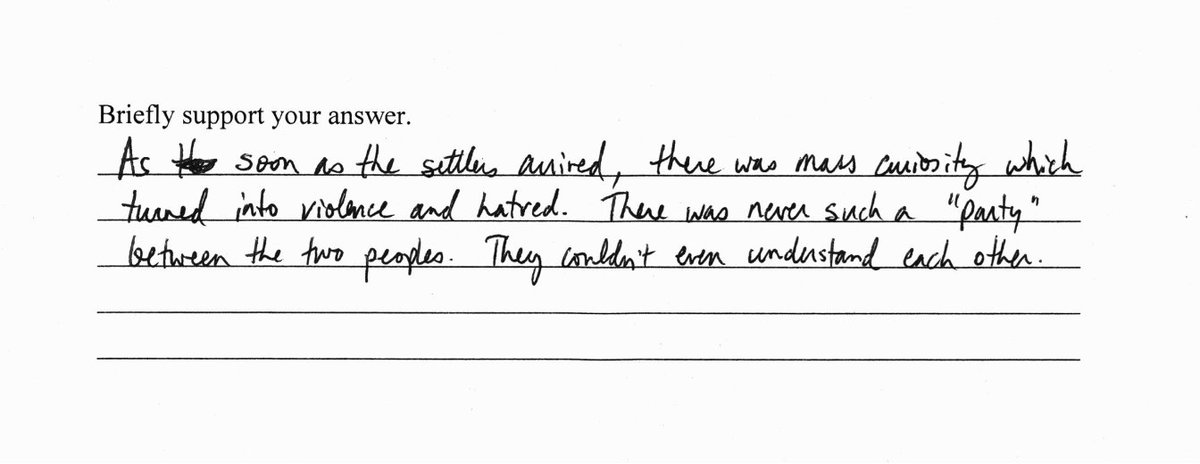 Briefly support your answer.
As soon as the settlers arrived, there was mass curiosity which
turned into violence and hatred. There was never such a "party"
between the two peoples. They couldn't even understand each other.